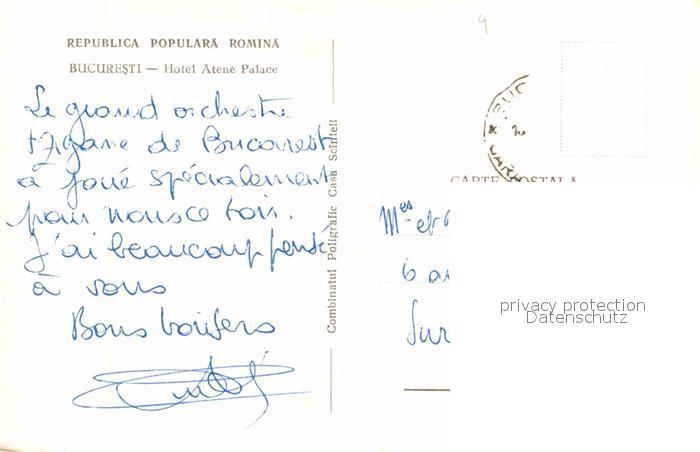 REPUBLICA POPULARĂ ROMINĂ
BUCUREŞTI — Hotel Atene Palace
Le grand orchestre
tzigane de Bucarest
à joué spécialement
pour nous ce soir.
J'ai beaucoup pensé
à vous
Bons baisers
Combinatul Poligrafic Casa Scînteii
CARTE POSTALA
Mes et
6
Sur
privacy protection
Datenschutz